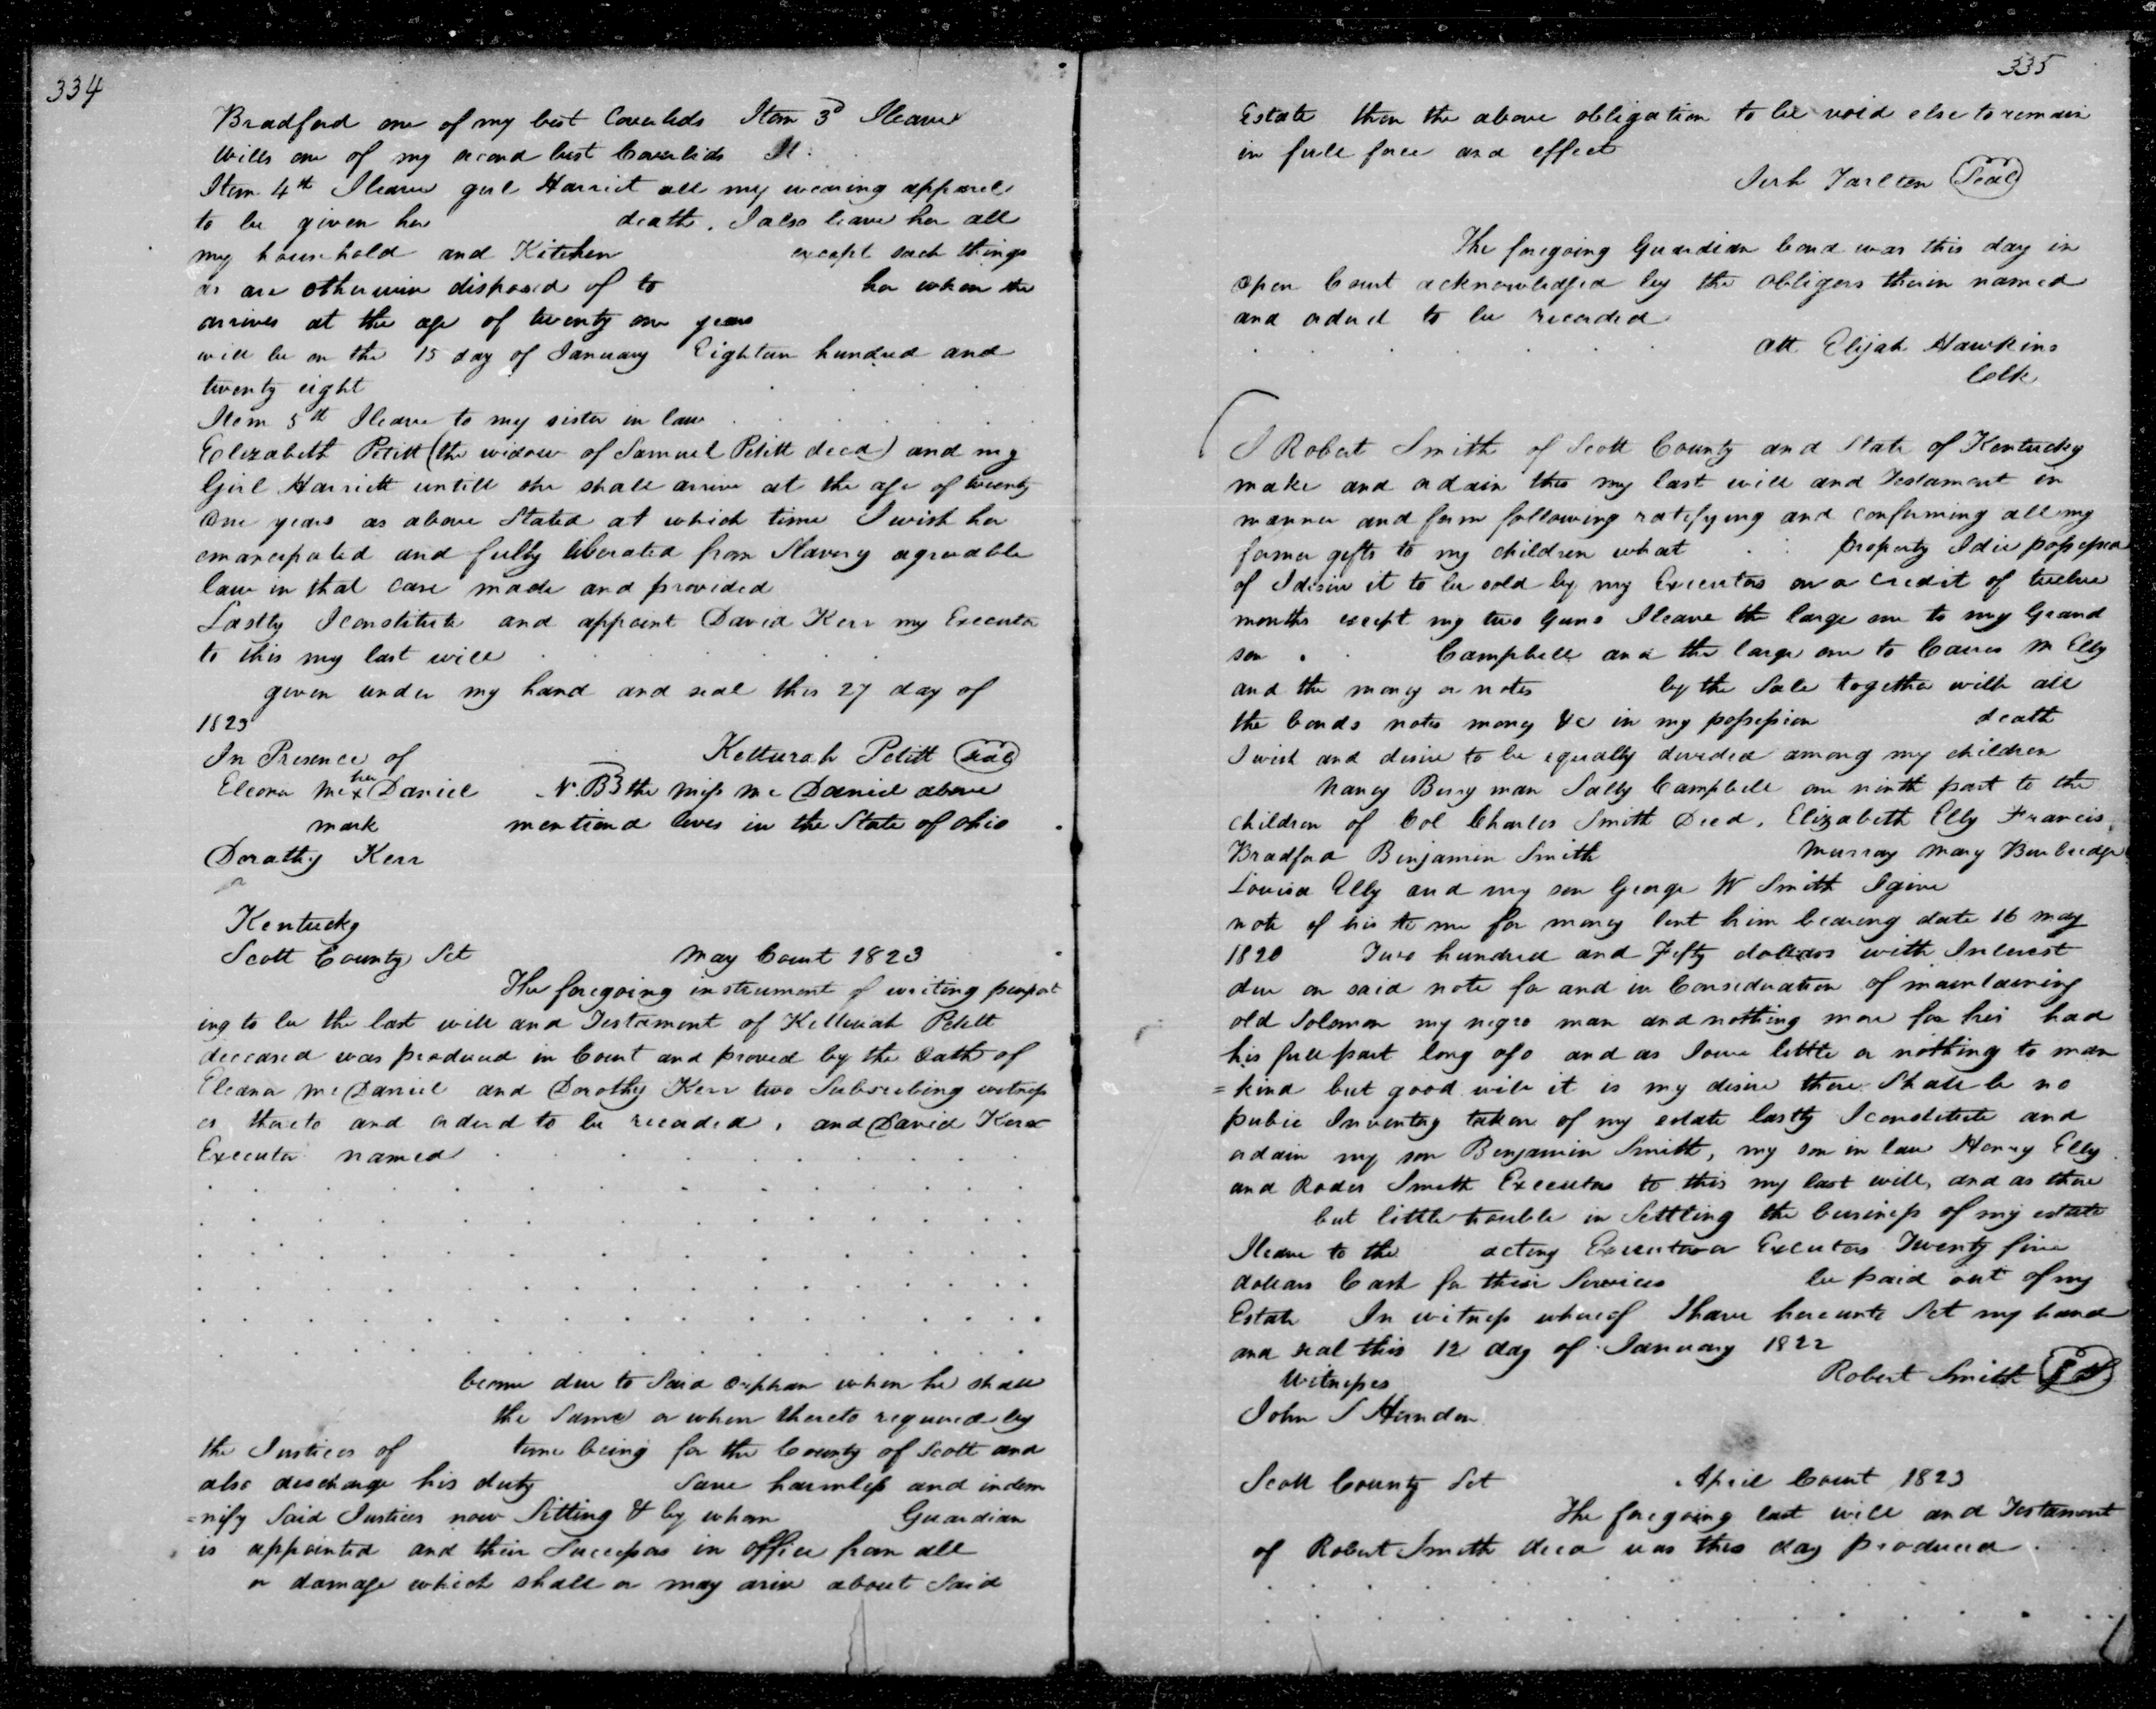 334
Bradford one of my best Coverleds Item 3d I leave
Wills one of my second best Coverlids It
Item 4th I leave girl Harriet all my wearing apparel
to be given her death, I also leave her all
my household and Kitchen except such things
as are otherwise disposed of to her when she
arrives at the age of twenty one years
will be on the 15 day of January Eighteen hundred and
twenty eight
Item 5th I leave to my sister in law
Elizabeth Petitt (the widow of Samuel Petitt decd) and my
Girl Harriett untill she shall arrive at the age of twenty
One years as above Stated at which time I wish her
emancipated and fully liberated from Slavery agreeable
law in that case made and provided
Lastly I constitute and appoint David Kerr my Executor
to this my last will
given under my hand and seal this 27 day of
1823
In Presence of Ketturah Petitt Seal
her
Eleona Mc x Daniel N.B the miss Mc Daniel above
mark mentiond lives in the State of Ohio
Dorathy Kerr
Kentucky
Scott County Sct May Court 1823
The foregoing instrument of writing purport
ing to be the last will and Testament of Ketturah Petitt
deceased was produced in Court and proved by the Oath of
Eleana Mc Daniel and Dorothy Kerr two Subscribing witness
es thereto and orderd to be recorded, and David Kerr
Executor named
become due to Said Orphan when he shall
the Same or when thereto required by
the Justices of time being for the County of Scott and
also discharge his duty Save harmless and indem
=nify Said Justices now Sitting & by whom Guardian
is appointed and their Successors in office from all
or damage which shall or may arise about Said
335
Estate then the above obligation to be void else to remain
in full force and effect
Jerh Tarlton Seal
The foregoing Guardian bond was this day in
Open Court acknowledged by the Obligors therin named
and orderd to be recorded
Att Elijah Hawkins
Colk
I Robert Smith of Scott County and State of Kentucky
make and ordain this my last will and Testament in
manner and form following ratifying and confirming all my
former gifts to my children what property I die possessed
of I desire it to be sold by my Executors on a credit of twelve
months except my two Guns I leave the large one to my Grand
son Campbell and the large one to M Elly
and the money or notes by the Sale together with all
the bonds notes money &c in my possession death
I wish and desire to be equally devided among my children
Nancy Berry man Sally Campbell one ninth part to the
children of Col Charles Smith Decd, Elizabeth Elly Francis
Bradford Benjamin Smith Murray Mary Burbridge
Louisa Elly and my son George W Smith I give
note of his to me for money lent him bearing date 16 may
1820 Two hundred and Fifty dollars with Interest
due on said note for and in Consideration of maintaining
old Solomon my negro man and nothing more for his had
his full part long ago and as I owe little or nothing to man
=kind but good will it is my desire there Shall be no
pubic Inventry taken of my estate lastly I constitute and
ordain my son Benjamin Smith, my son in law Henry Elly
and Rodes Smith Executors to this my last will, and as there
but little trouble in Settling the business of my estate
I leave to the acting Executor or Excutors Twenty five
dollars Cash for their Services be paid out of my
Estate In witness whereof I have hereunto Set my hand
and seal this 12 day of January 1822
Witnesses Robert Smith
John S Herndon
Scott County Sct April Court 1823
The foregoing last will and Testament
of Robert Smith decd was this day produced